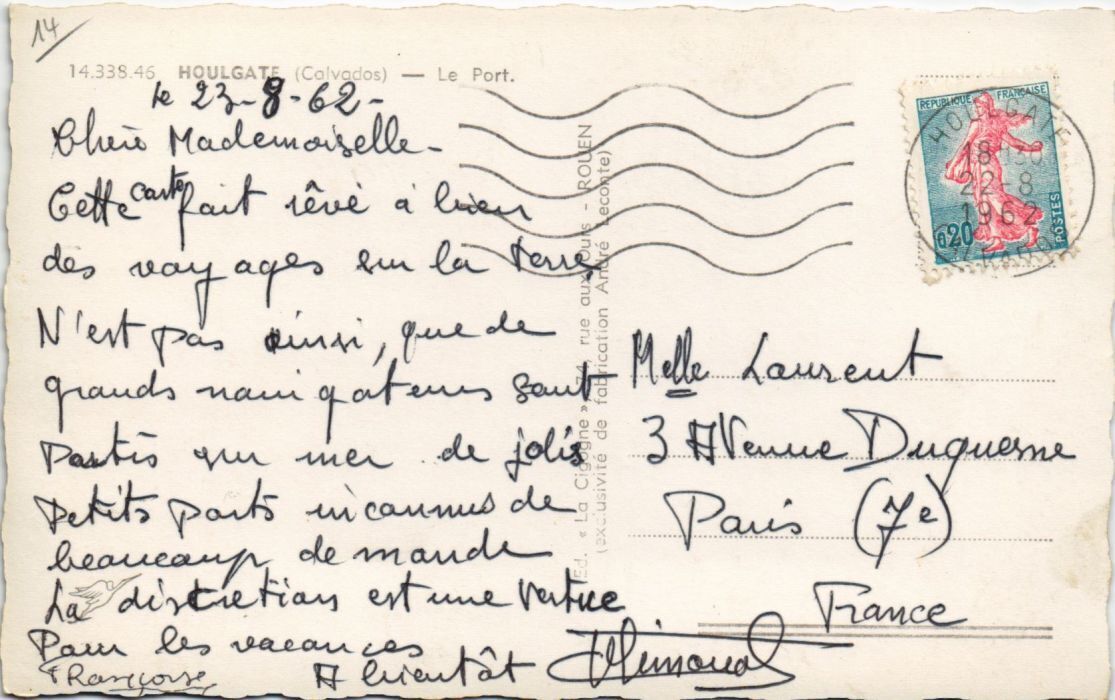 14
14.338.46 HOULGATE (Calvados) — Le Port.
le 23-8-62-
Chère Mademoiselle-
Cette carte fait rêvé à bien
des voyages sur la terre,
N'est pas ainsi, que de
grands navigateurs sont
Partis sur mer de jolis
Petits ports inconnus de
beaucoup de monde
La discretion est une Vertue
Pour les vacances
A bientôt
Françoise
Ed. « La Cigogne » 74, rue aux Ours - ROUEN
(exclusivité de fabrication André Leconte)
REPUBLIQUE FRANÇAISE
0,20
POSTES
HOULGATE
18 H30
22-8
1962
CALVADOS
Melle Laurent
3 AVenue Duquesne
Paris (7e)
France